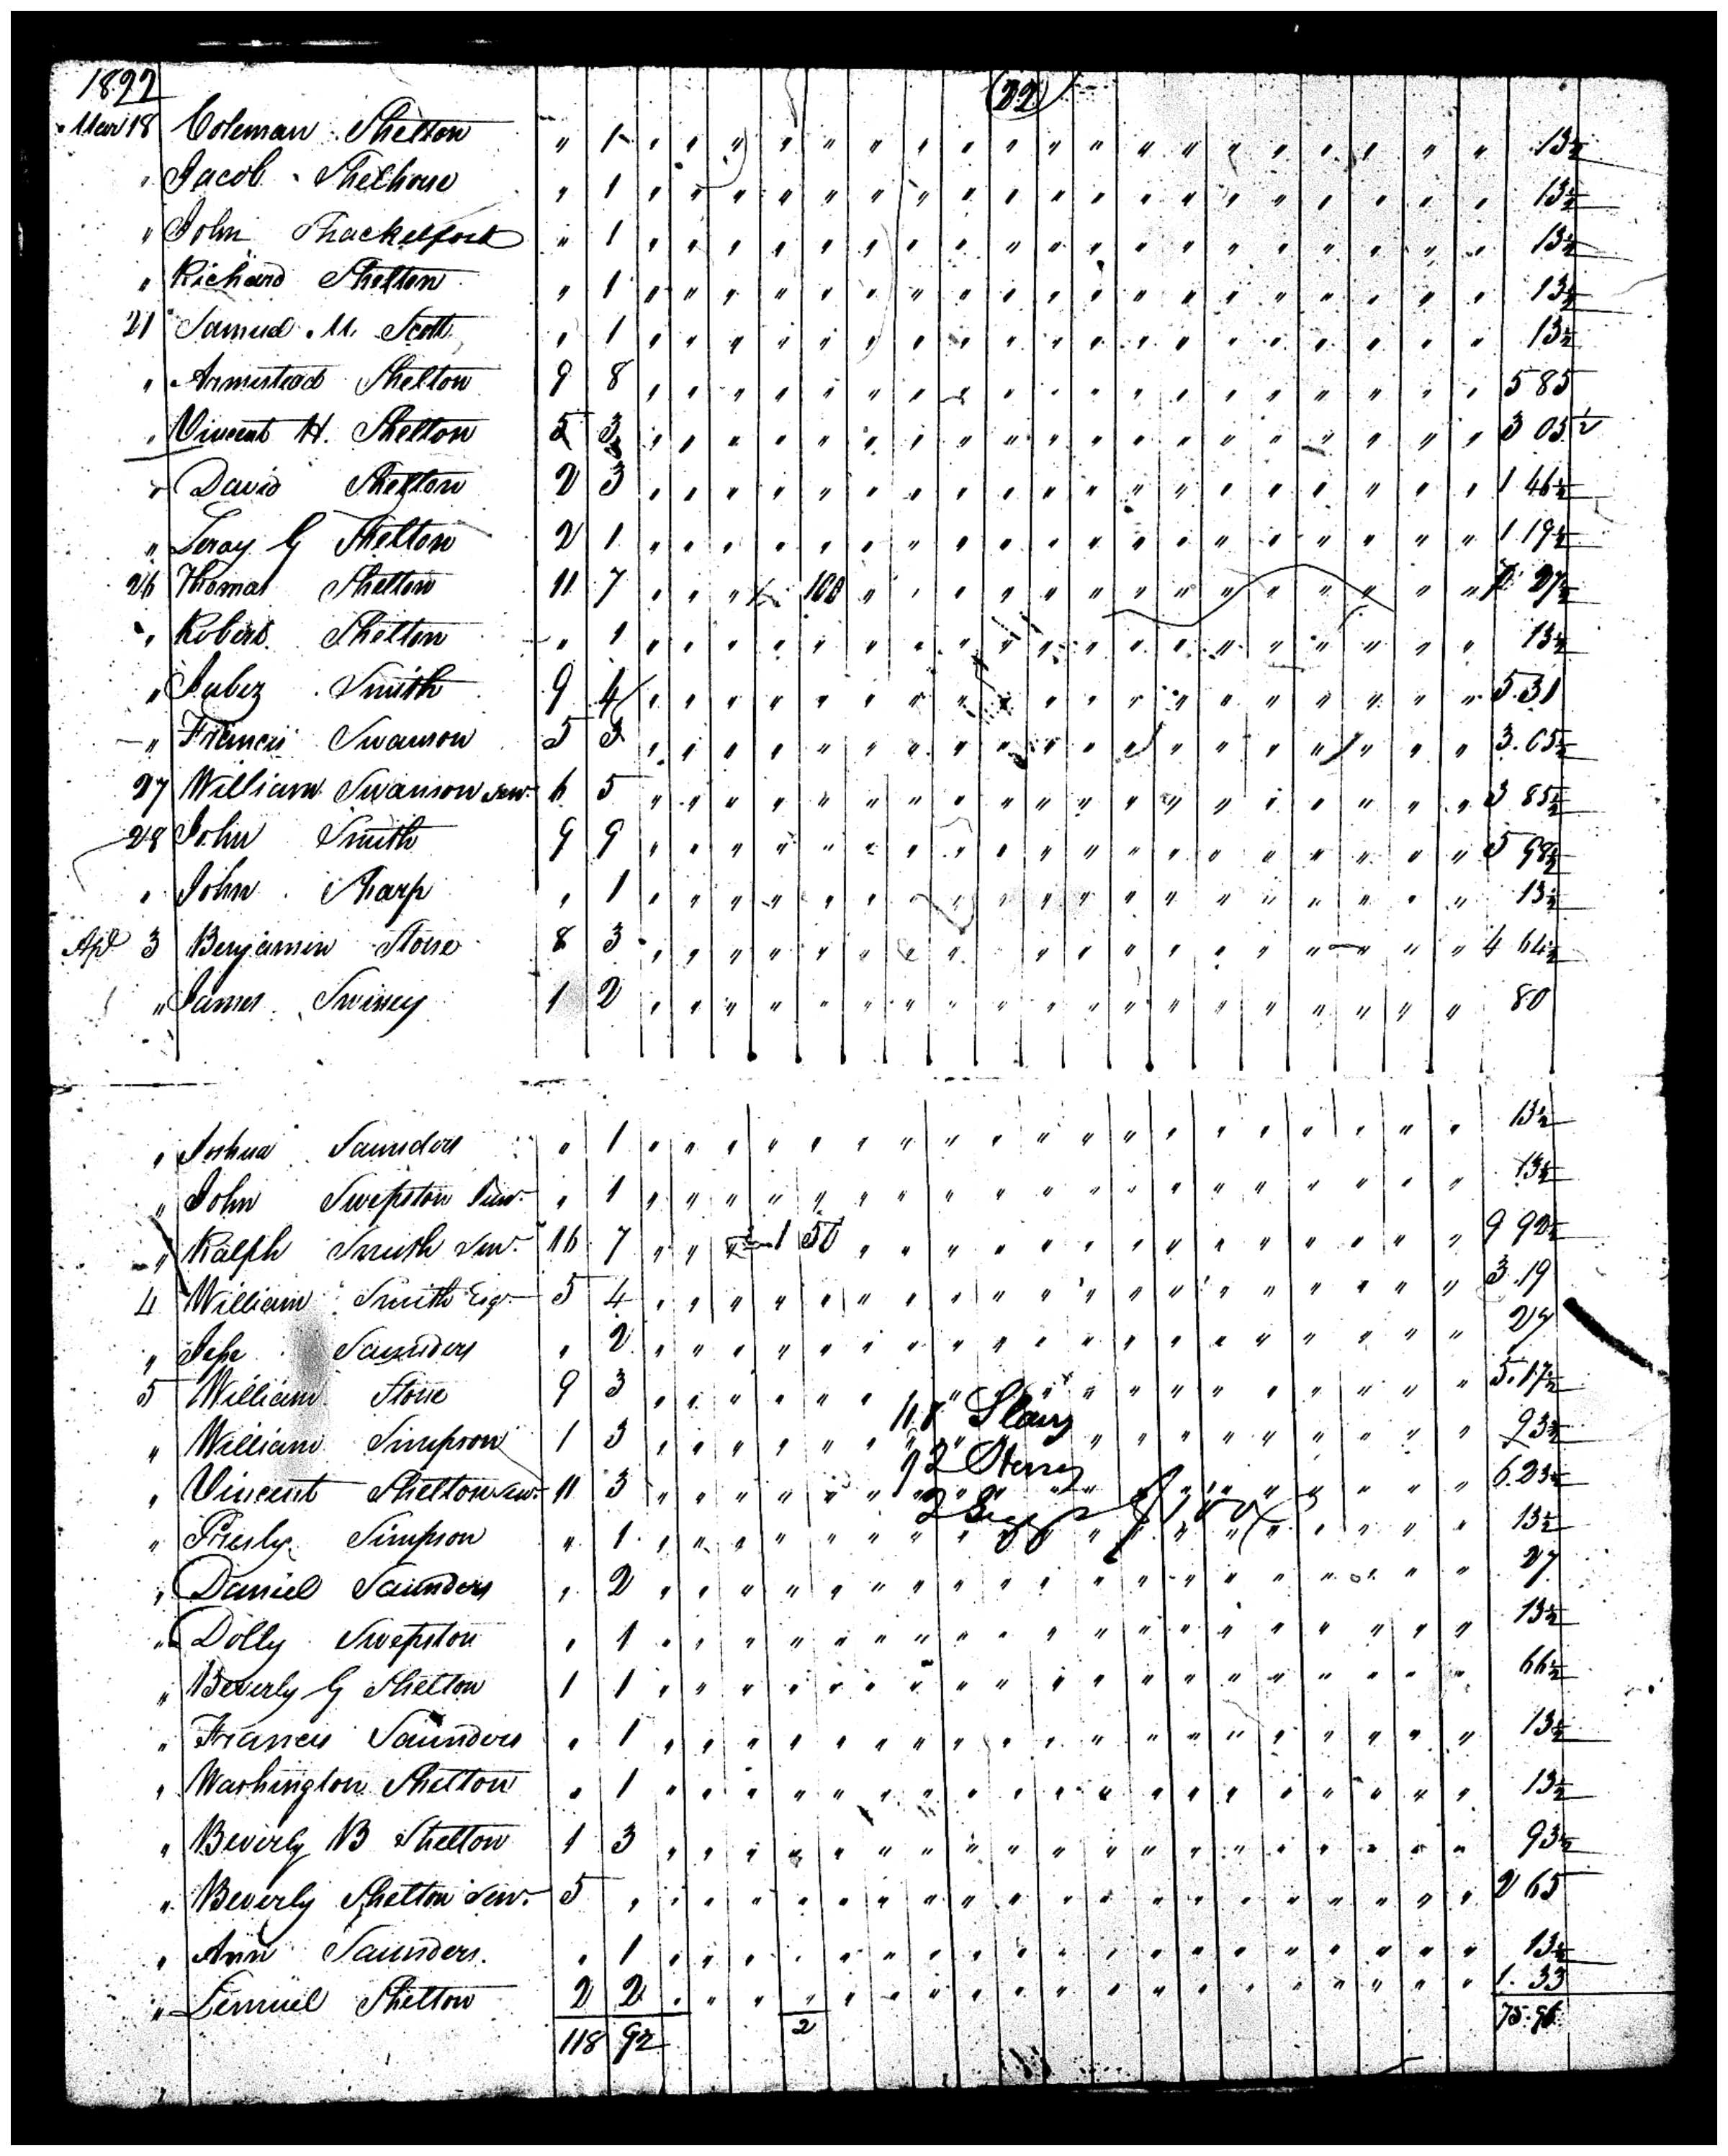 1822 (22)
Mar 18 Coleman Shelton " 1 " " " " " " " " " " " " " " " " " " " 13½
" Jacob Shelhorse " 1 " " " " " " " " " " " " " " " " " " " 13½
" John Shackelford " 1 " " " " " " " " " " " " " " " " " " " 13½
" Richard Shelton " 1 " " " " " " " " " " " " " " " " " " " 13½
21 Samuel M. Scott " 1 " " " " " " " " " " " " " " " " " " " 13½
" Armistead Shelton 9 8 " " " " " " " " " " " " " " " " " " " 5 85
" Vincent H. Shelton 5 3 " " " " " " " " " " " " " " " " " " " 3 05½
" David Shelton 2 3 " " " " " " " " " " " " " " " " " " " 1 46½
" Leroy G Shelton 2 1 " " " " " " " " " " " " " " " " " " " 1 19½
26 Thomas Shelton 11 7 " " " 100 " " " " " " " " " " " " " " 27½
" Robert Shelton " 1 " " " " " " " " " " " " " " " " " " " 13½
" Jabez Smith 9 4 " " " " " " " " " " " " " " " " " " " 5.31
" Francis Swanson 5 3 " " " " " " " " " " " " " " " " " " " 3.05½
27 William Swanson Sen. 6 5 " " " " " " " " " " " " " " " " " " " 3 85½
28 John Smith 9 9 " " " " " " " " " " " " " " " " " " " 5 98½
" John Sharp " 1 " " " " " " " " " " " " " " " " " " " 13½
Apl 3 Benjamin Stone 8 3 " " " " " " " " " " " " " " " " " " " 4 64½
" James Swiney 1 2 " " " " " " " " " " " " " " " " " " " 80
" Joshua Saunders " 1 " " " " " " " " " " " " " " " " " " " 13½
" John Swepston Jun. " 1 " " " " " " " " " " " " " " " " " " " 13½
" Ralph Smith Sen. 16 7 " " " 1 50 " " " " " " " " " " " " " " 9 92½
4 William Smith Esqr. 5 4 " " " " " " " " " " " " " " " " " " " 3.19
" Jesse Saunders " 2 " " " " " " " " " " " " " " " " " " " 27
5 William Stone 9 3 " " " " " " " " " " " " " " " " " " " 5.17½
118 Slaves
" William Simpson 1 3 " " " " " " " " " " " " " " " " " " " 93½
92 Horses
" Vincent Shelton Sen. 11 3 " " " " " " " " " " " " " " " " " " " 6.23½
2 Giggs $150
" Presly Simpson " 1 " " " " " " " " " " " " " " " " " " " 13½
" Daniel Saunders " 2 " " " " " " " " " " " " " " " " " " " 27
" Dolly Swepston " 1 " " " " " " " " " " " " " " " " " " " 13½
" Beverly G Shelton 1 1 " " " " " " " " " " " " " " " " " " " 66½
" Francis Saunders " 1 " " " " " " " " " " " " " " " " " " " 13½
" Washington Shelton " 1 " " " " " " " " " " " " " " " " " " " 13½
" Beverly B Shelton 1 3 " " " " " " " " " " " " " " " " " " " 93½
" Beverly Shelton Sen. 5 " " " " " " " " " " " " " " " " " " " " 2 65
" Ann Saunders " 1 " " " " " " " " " " " " " " " " " " " 13½
" Lemuel Shelton 2 2 " " " " " " " " " " " " " " " " " " " 1.33
118 92 2 75.96